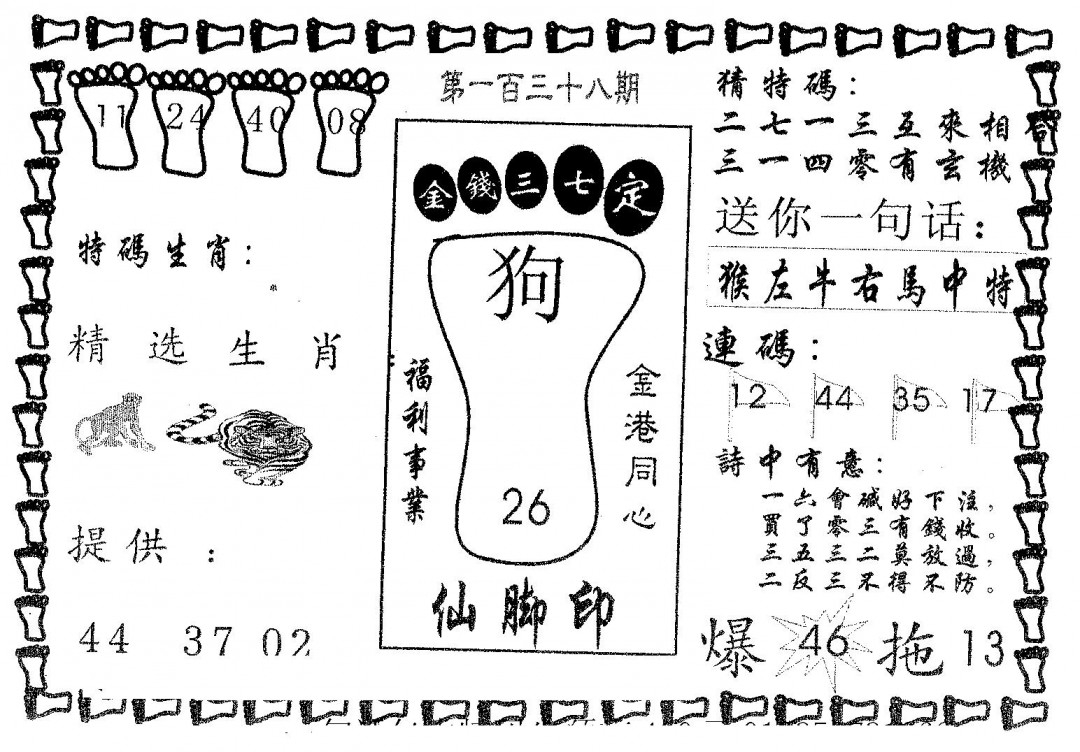 第一百三十八期
11 24 40 08
特碼生肖：
精选生肖
提供：
44 37 02
金錢三七定
狗
福利事業
金港同心
26
仙脚印
猜特碼：
二七一三五來相
三一四零有玄機
送你一句话：
猴左牛右馬中特
連碼：
12 44 35 17
詩中有意：
一六會碱好下注，
買了零三有錢收。
三五三二莫放過，
二反三不得不防。
爆 46 拖 13